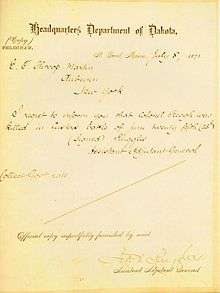 Headquarters Department of Dakota.
Copy
TELEGRAM.
St Paul, Minn, July 8", 187
E. T. Throop Martin
Auburn
New York
I regret to inform you that Colonel Keogh was
killed in Custers battle of June twenty fifth (25th)
(Signed) Ruggles
Assistant Adjutant General
Collect Govt rate
Official copy respectfully furnished by mail
Assistant Adjutant General